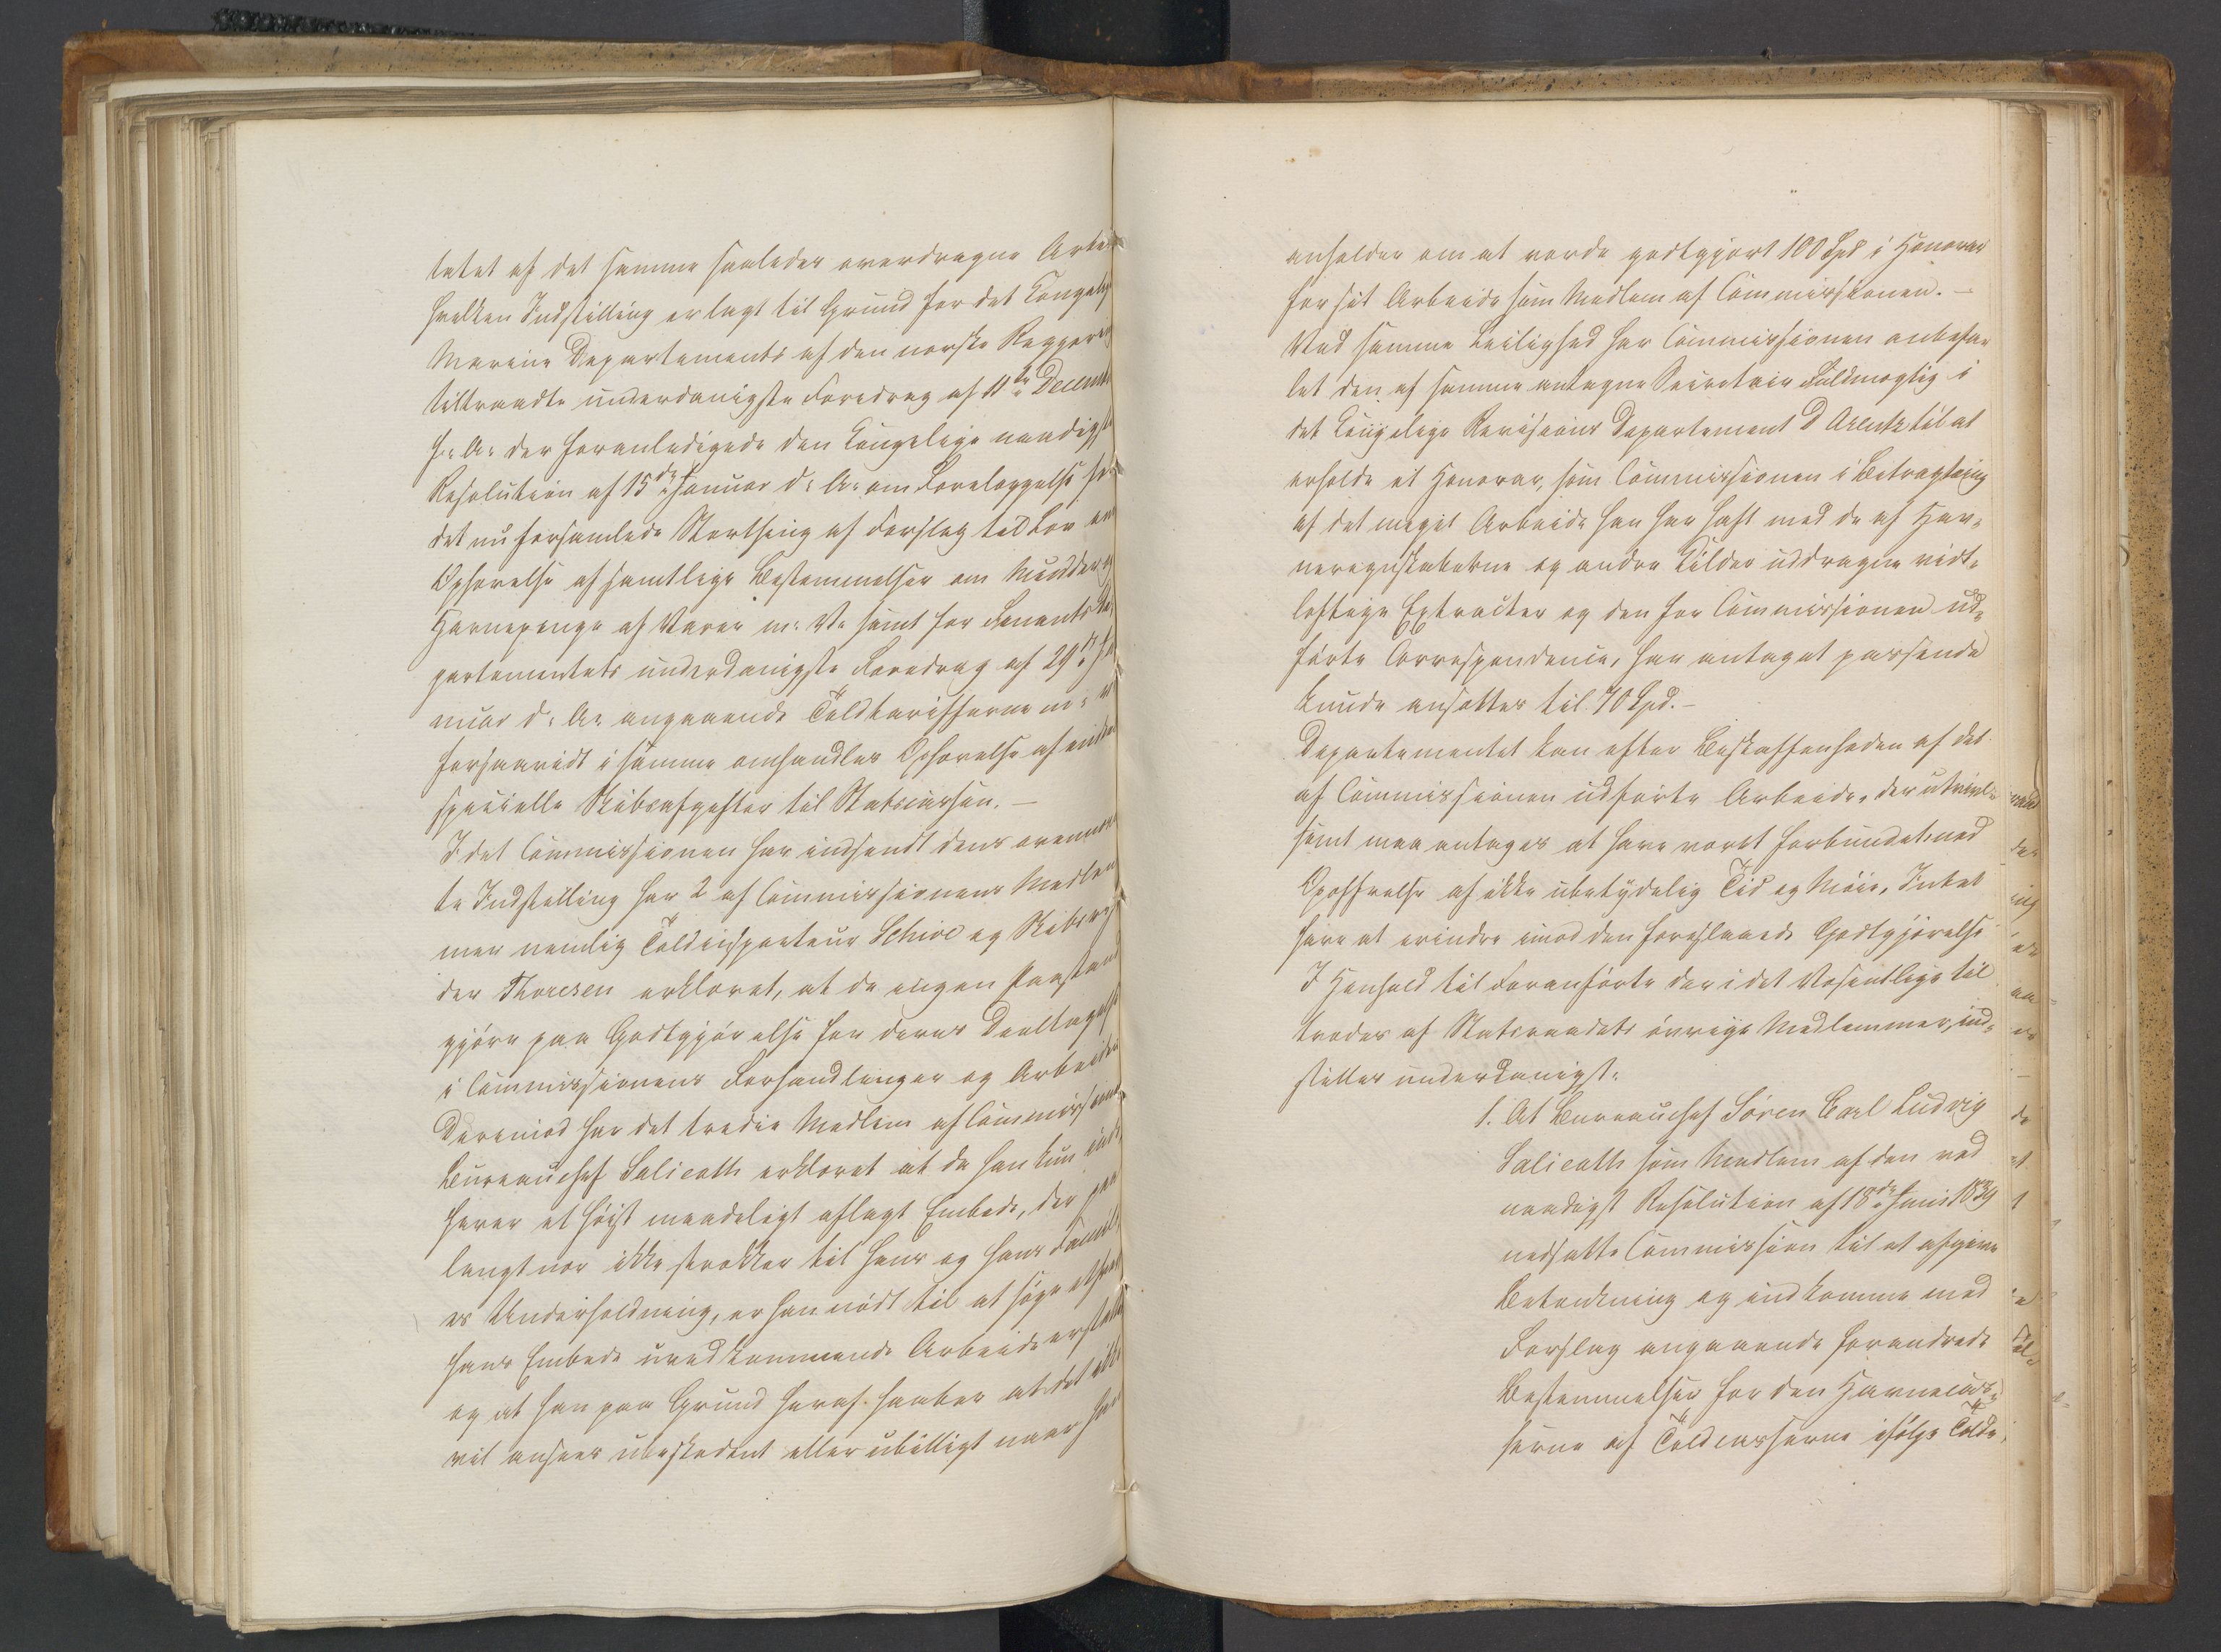 tatet af det samme saaledes overdragne Arbei
hvilken Indstilling er lagt til Grund for det Kongelige
Marine Departements af den norske Regjering
tiltraadte underdanigste Foredrag af 11te Decemb
f: A: der foranledigede den Kongelige naadigste
Resolution af 15de Januar d: A: om Forelæggelse for
det nu forsamlede Storthing af Forslag til Lov om
Ophævelse af samtlige Bestemmelser om Mudder og
Havnepenge af Varer m: V: samt for Finants De
partementets underdanigste Foredrag af 29de Ja
nuar d: A: angaaende Toldtarifferne m: v:
forsaavidt i samme omhandles Ophævelse af enkelte
specielle Skibsafgifter til Statscassen. —
Idet Commissionen har indsendt dens ovennævn
te Indstilling har 2 af Commissionens Medlem
mer nemlig Toldinspecteur Schive og Skibsre
der Thoresen erklæret, at de ingen Paastand
gjøre paa Godtgjørelse for deres Deeltagelse
i Commissionens Forhandlinger og Arbeider
Derimod har det tredie Medlem af Commissionen
Bureauchef Salicath erklæret at da han kun inde
haver et høist maadeligt aflagt Embede, der paa
langt nær ikke strækker til hans og hans Famili
es Underholdning, er han nødt til at søge ethvert
hans Embede uvedkommende Arbeide erstattet
og at han paa Grund heraf haaber at det ikke
vil ansees ubeskedent eller ubilligt naar han
anholder om at vorde godtgjort 100 Spd i Honorar
for sit Arbeide som Medlem af Commissionen. —
Ved samme Leilighed har Commissionen anbefa-
let den af samme antagne Secretair Fuldmægtig i
det Kongelige Revisions Departement D Arentz til at
erholde et Honorar, som Commissionen i Betragtning
af det meget Arbeide han har haft med de af Hav-
neregnskaberne og andre Kilder uddragne vidt-
løftige Extracter og den for Commissionen ud-
førte Correspondence, har antaget passende
kunde ansættes til 70 Spd. —
Departementet kan efter Beskaffenheden af det
af Commissionen udførte Arbeide, der utvivl-
somt maa antages at have været forbundet med
Opoffrelse af ikke ubetydelig Tid og Møie, Intet
have at erindre imod den foreslaaede Godtgjørelse
I Henhold til Foranførte der i det Væsentlige til
trædes af Statsraadets øvrige Medlemmer, ind-
stilles underdanigst:
1. At Bureauchef Søren Carl Ludvig
Salicath som Medlem af den ved
naadigst Resolution af 18de Juni 1839
nedsatte Commission til at afgive
Betænkning og indkomme med
Forslag angaaende forandrede
Bestemmelser for den Havnecas-
serne af Toldcasserne ifølge Told-